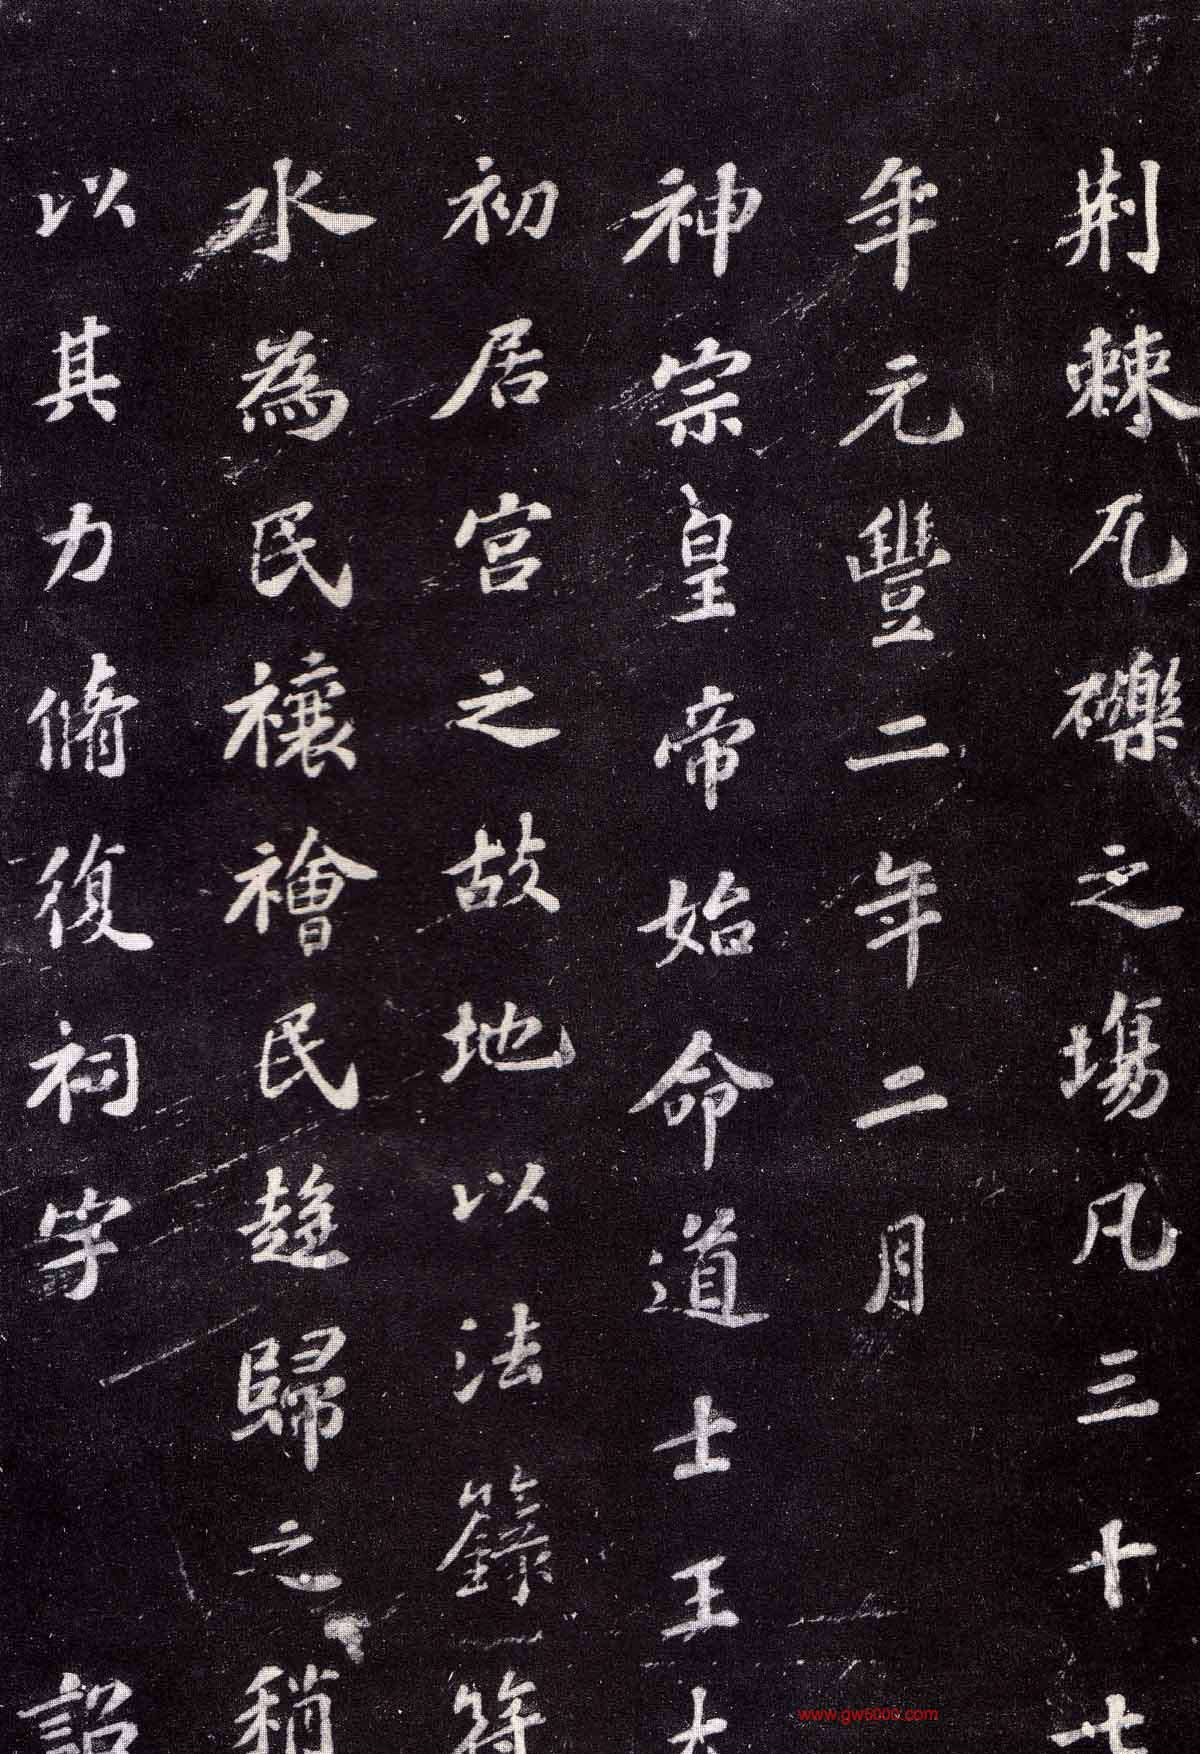 荊棘瓦礫之場凡三十七
年元豐二年二月
神宗皇帝始命道士王太
初居宮之故地以法籙符
水為民禳禬民趍歸之稍
以其力脩復祠宇　詔
www.gw5000.com